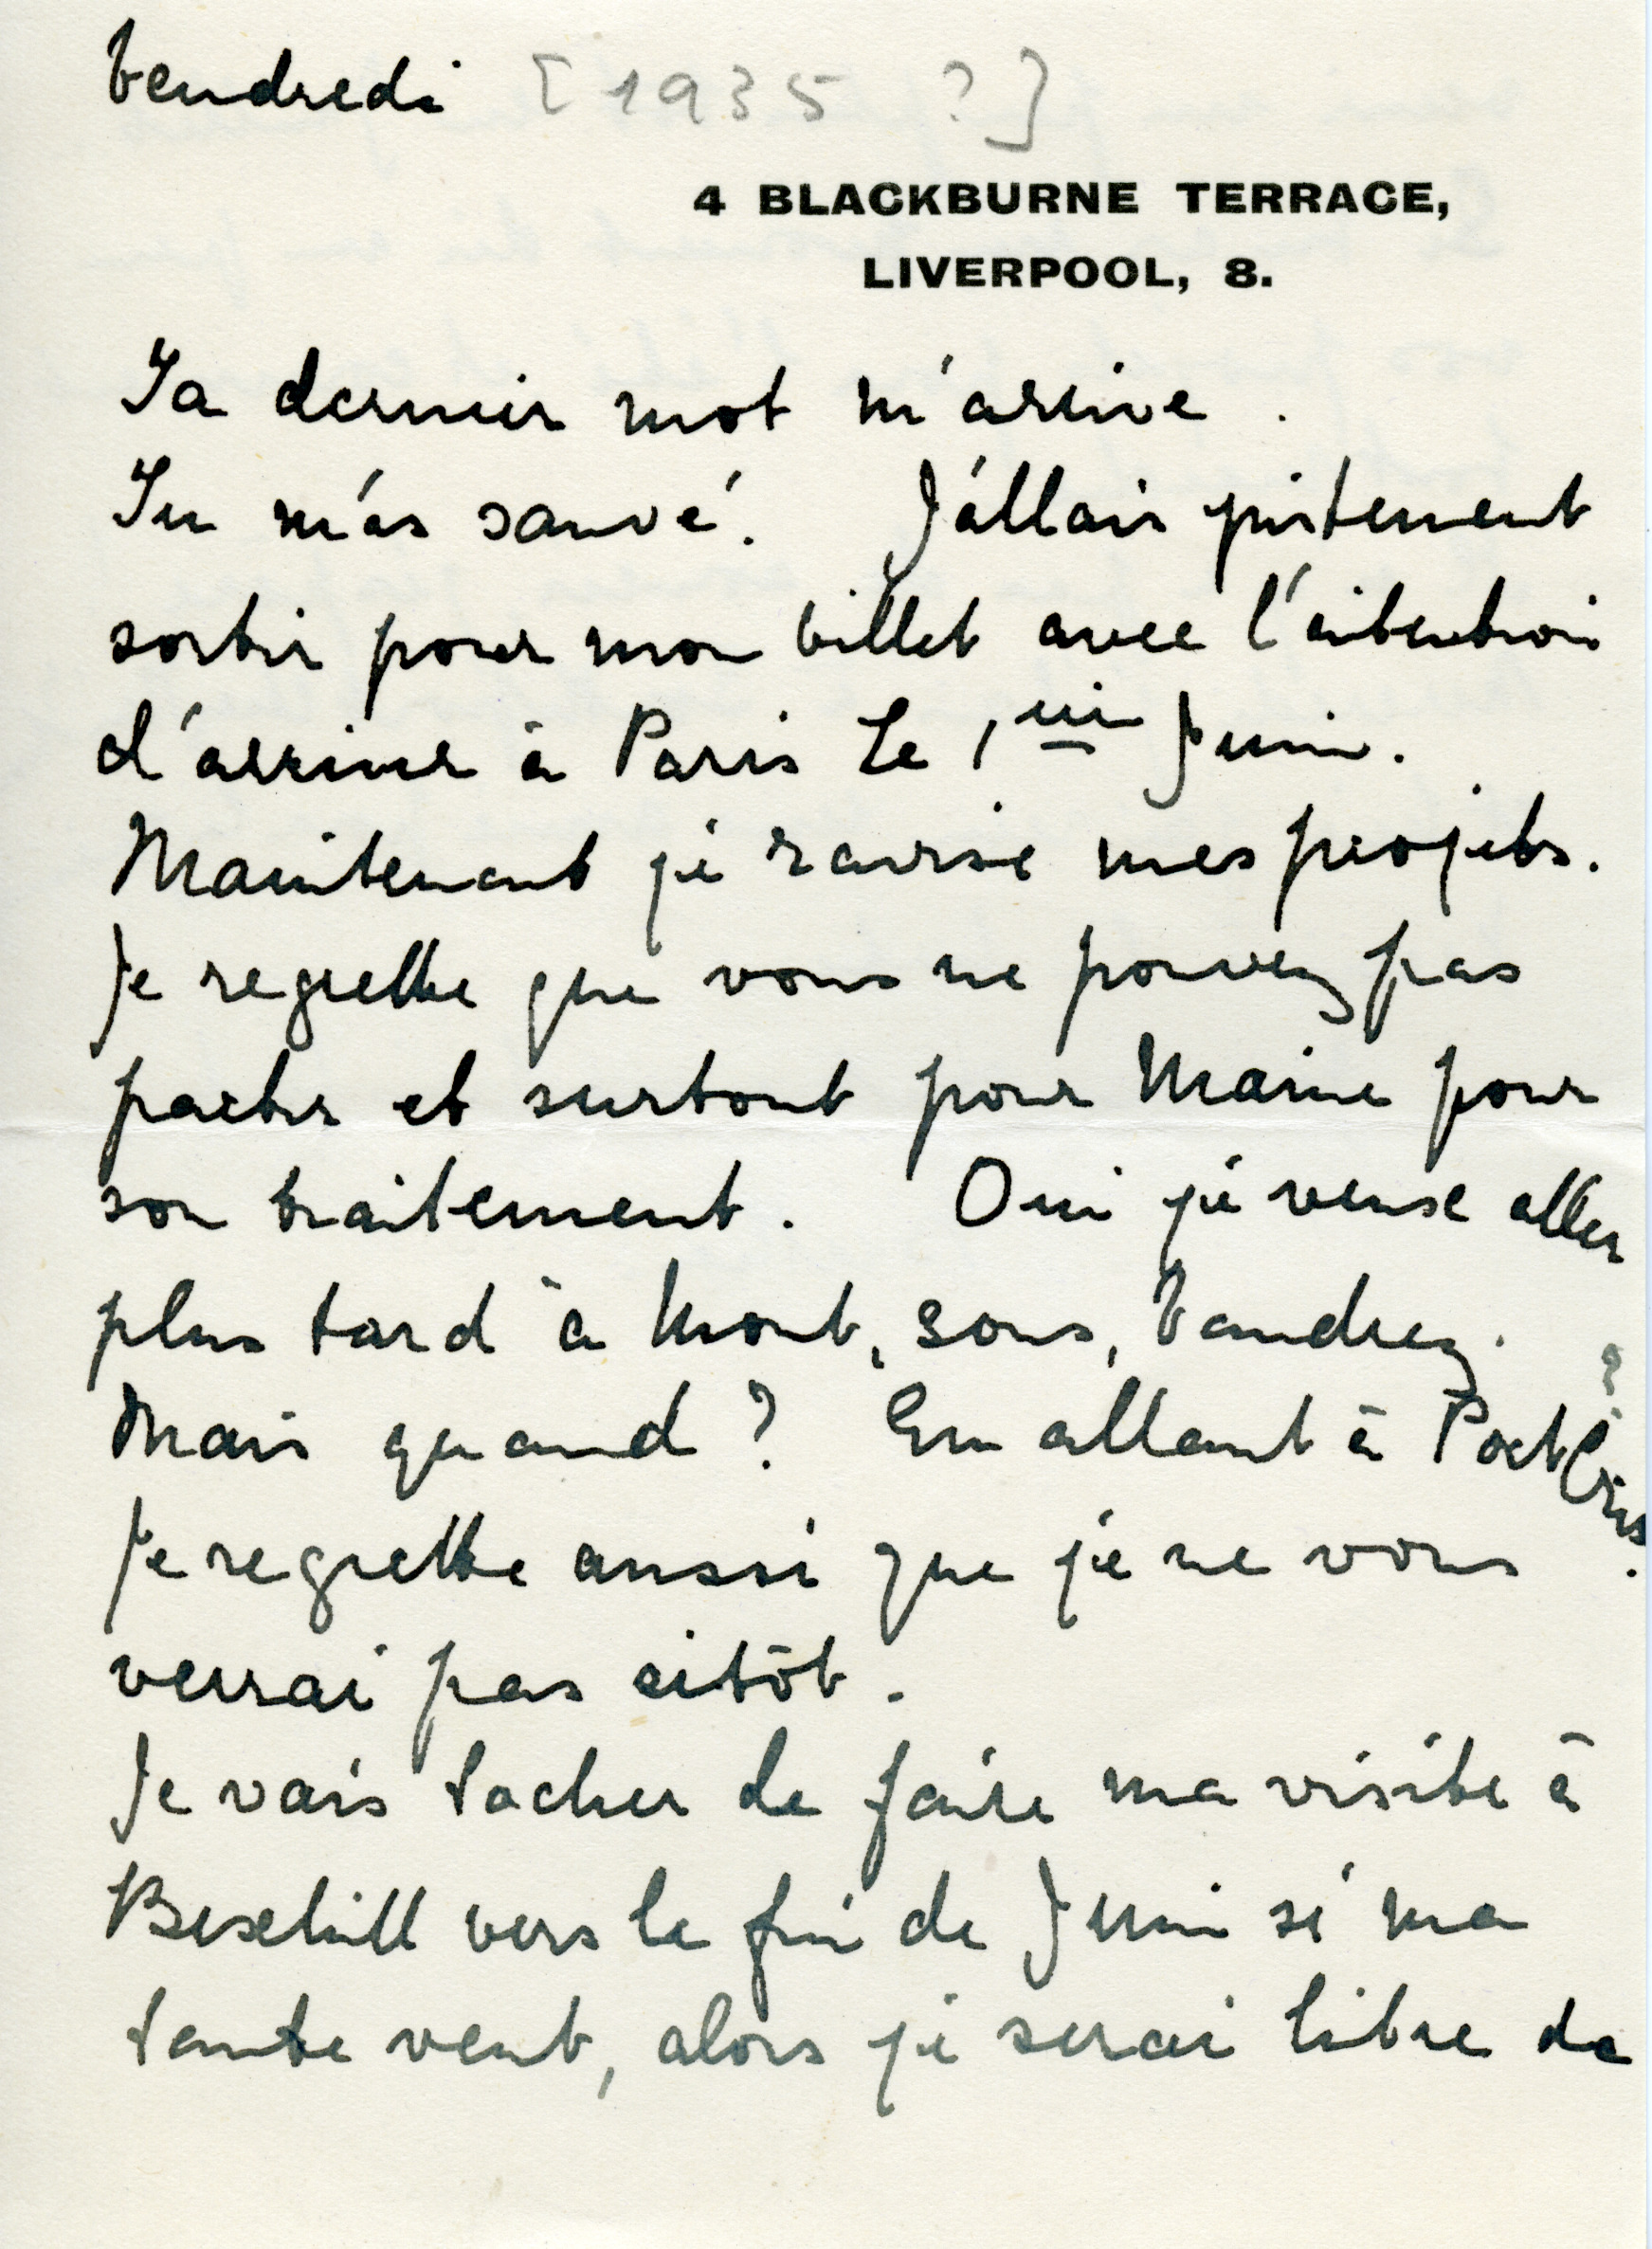 Vendredi [1935 ?]
4 BLACKBURNE TERRACE,
LIVERPOOL, 8.
Ta dernier mot m'arrive.
Tu m'as sauvé. J'allais justement
sortir pour mon billet avec l'intention
d'arriver à Paris le 1er Juin.
Maintenant je ravise mes projets.
Je regrette que vous ne pouvez pas
partir et surtout pour Marie pour
son traitement. Oui je veux aller
plus tard à Mont, sous, Vaudrez.
Mais quand ? En allant à Port Cris. ?
Je regrette aussi que je ne vous
verrai pas sitôt.
Je vais tacher de faire ma visite à
Bexhill vers la fin de Juin si ma
tante veut, alors je serai libre de